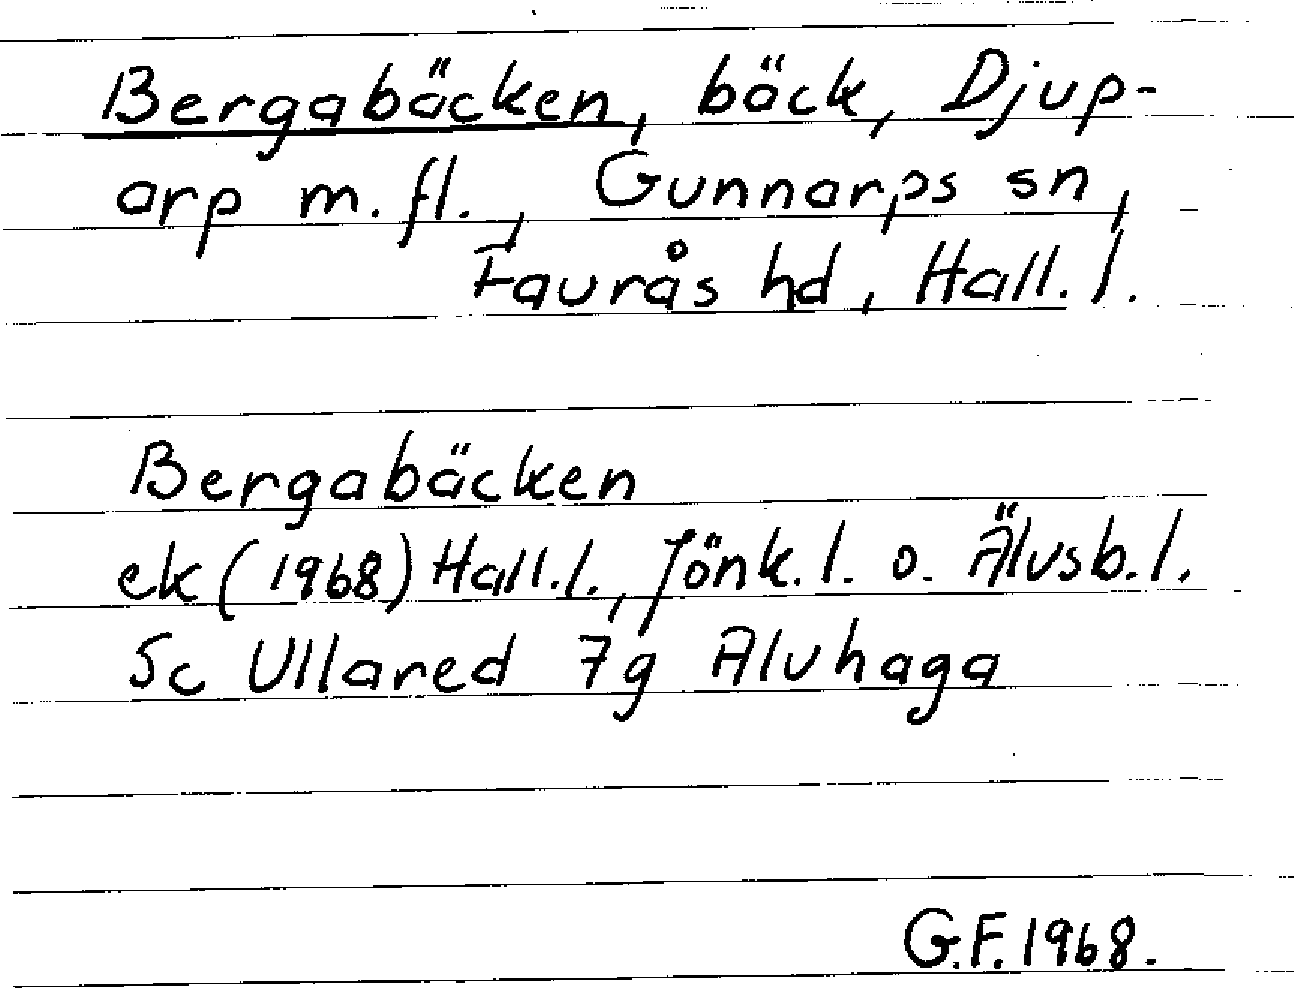 Bergabäcken, bäck, Djup-
arp m.fl., Gunnarps sn,
Faurås hd, Hall.l.
Bergabäcken
ek (1968) Hall.l., Jönk.l. o. Älvsb.l.
5c Ullared 7g Alvhaga
G.F. 1968.